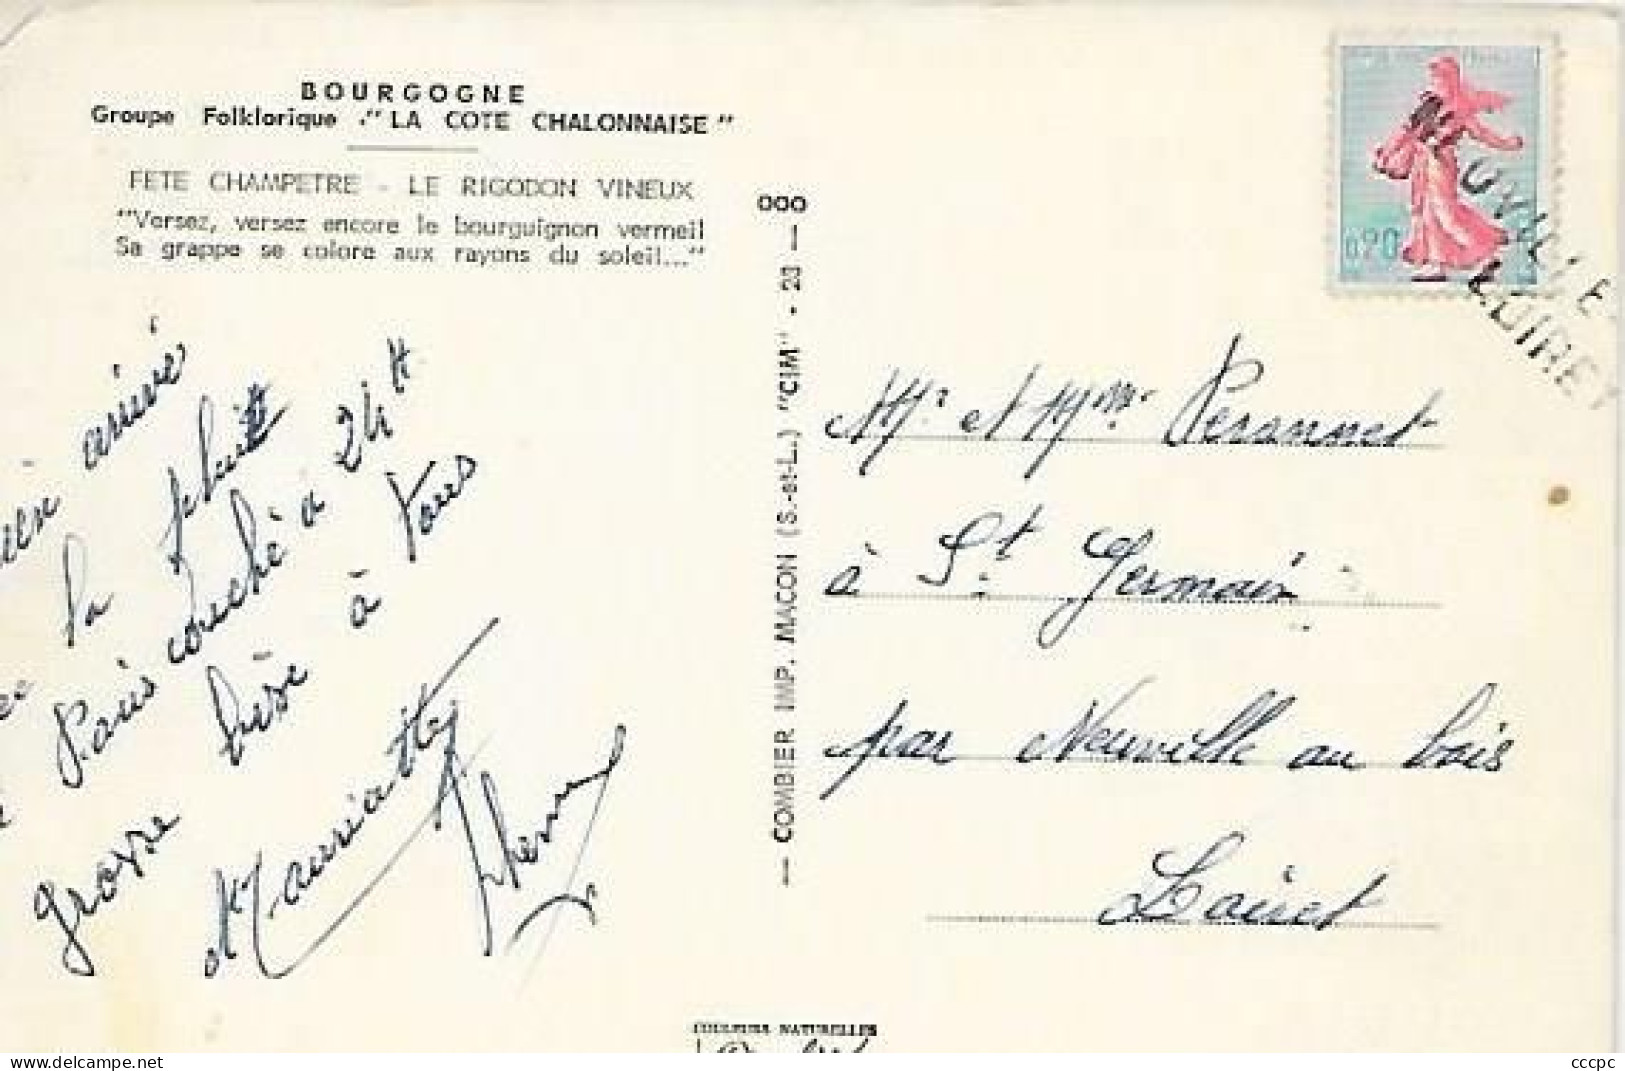 BOURGOGNE
Groupe Folklorique "LA COTE CHALONNAISE"
FETE CHAMPETRE - LE RIGODON VINEUX
"Versez, versez encore le bourguignon vermeil
Sa grappe se colore aux rayons du soleil..."
arrivé
la
Paris couché à 24 H
grosse bise à tous
Mauricette
000
— COMBIER IMP. MACON (S.-et-L.) "CIM" - 20 —
0,20
NEUVILLE-
LOIRET
Mr et Mme Personnet
à St Germain
par Neuville au bois
Loiret
COULEURS NATURELLES
cccpc